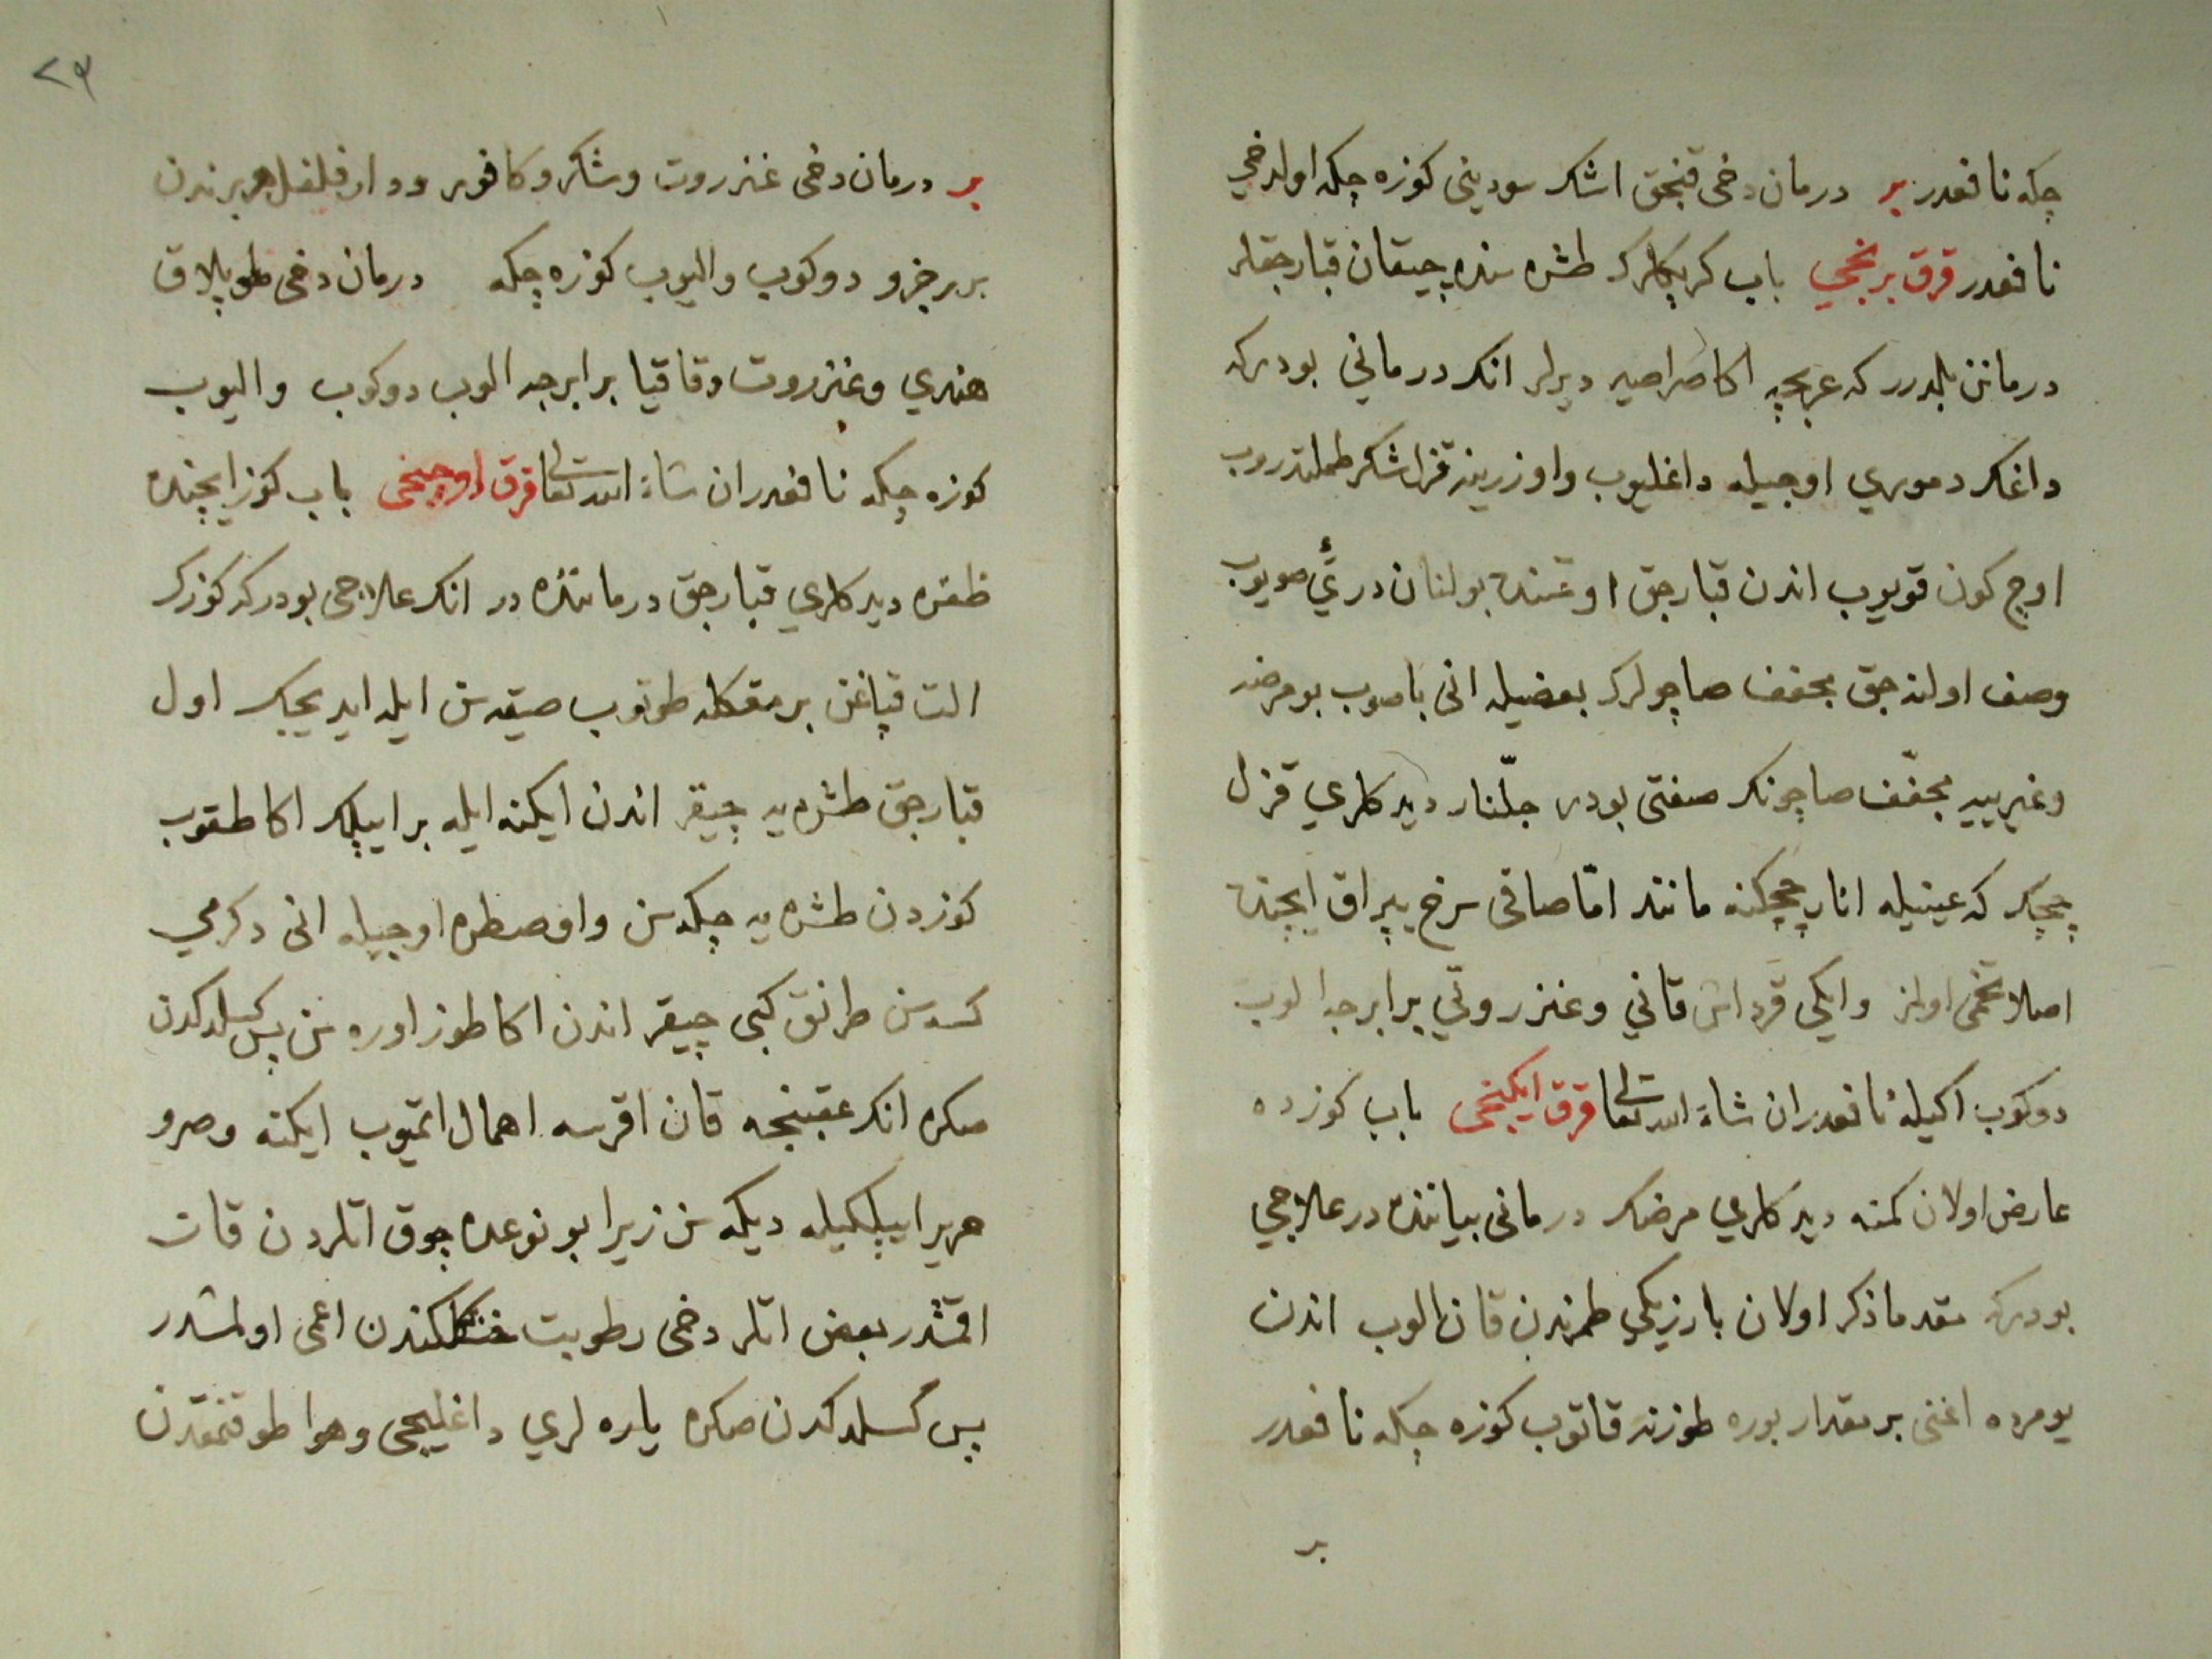 چكه نافعدر بر درمان دخی قنجق اشك سودینی كوزه چكه اولدخی
نافعدر قرق برنجی باب كرپكلرك طشره سنده چیقان قبارجقلر
درمانن بلدرر كه عربجه اكا دیرلر انك درمانی بودركه
داغك دموری اوجیله داغلیوب واوزرینه قزل شكر طملتدروب
اوچ كون قویوب اندن قبارجق اوستنده بولنان دریئی صویوب
وصف اولنه جق مجفف صاچولرك بعضیله انی باصوب بو مرضه
وغیرییه مجفّف صاچونك صفتی بودر جلّنار دیدكلری قزل
چچك كه عینیله انار چچكنه مانند امّا صاقی سرخ یپراق ایچنده
اصلا تخمی اولمز وایكی قرداش قانی وغنزروتی برابرجه الوب
دوكوب اكیله نافعدر ان شاء الله تعالی قرق ایكنجی باب كوزده
عارض اولان كمنه دیدكلری مرضك درمانی بیاننده در علاجی
بودركه مقدما ذكر اولان بازیكی طمرندن قان الوب اندن
یومرده اغنی بر مقدار بوره طوزنه قاتوب كوزه چكه نافعدر
بر
٢٩
بر درمان دخی غنزروت وشكر وكافور ودار فلفل هر برندن
برر جزو دوكوب والیوب كوزه چكه درمان دخی طوپلاق
هندی وغنزروت وقاقیا برابرجه الوب دوكوب والیوب
كوزه چكه نافعدر ان شاء الله تعالی قرق اوچنجی باب كوز ایچنده
ظفره دیدكلری قبارجق درماننده در انك علاجی بودركه كوزك
الت قپاغن برمقله طوتوب صیقه سن ایله ایدیجك اول
قبارجق طشره یه چیقر اندن ایكنه ایله بر ایپلك اكا طقوب
كوزدن طشره یه چكه سن واوصطره اوجیله انی دكرمی
كسه سن طرنق كبی چیقر اندن اكا طوز اوره سن پس كسلدكدن
صكره انك عقبنجه قان اقرسه اهمال اتمیوب ایكنه وصرو
حریر ایپلكیله دیكه سن زیرا بو نوعده چوق اتلردن قان
اقمشدر بعض اتلر دخی رطوبت خشكلكندن اعمی اولمشدر
پس كسلدكدن صكره یاره لری داغلیجی وهوا طوقنمقدن